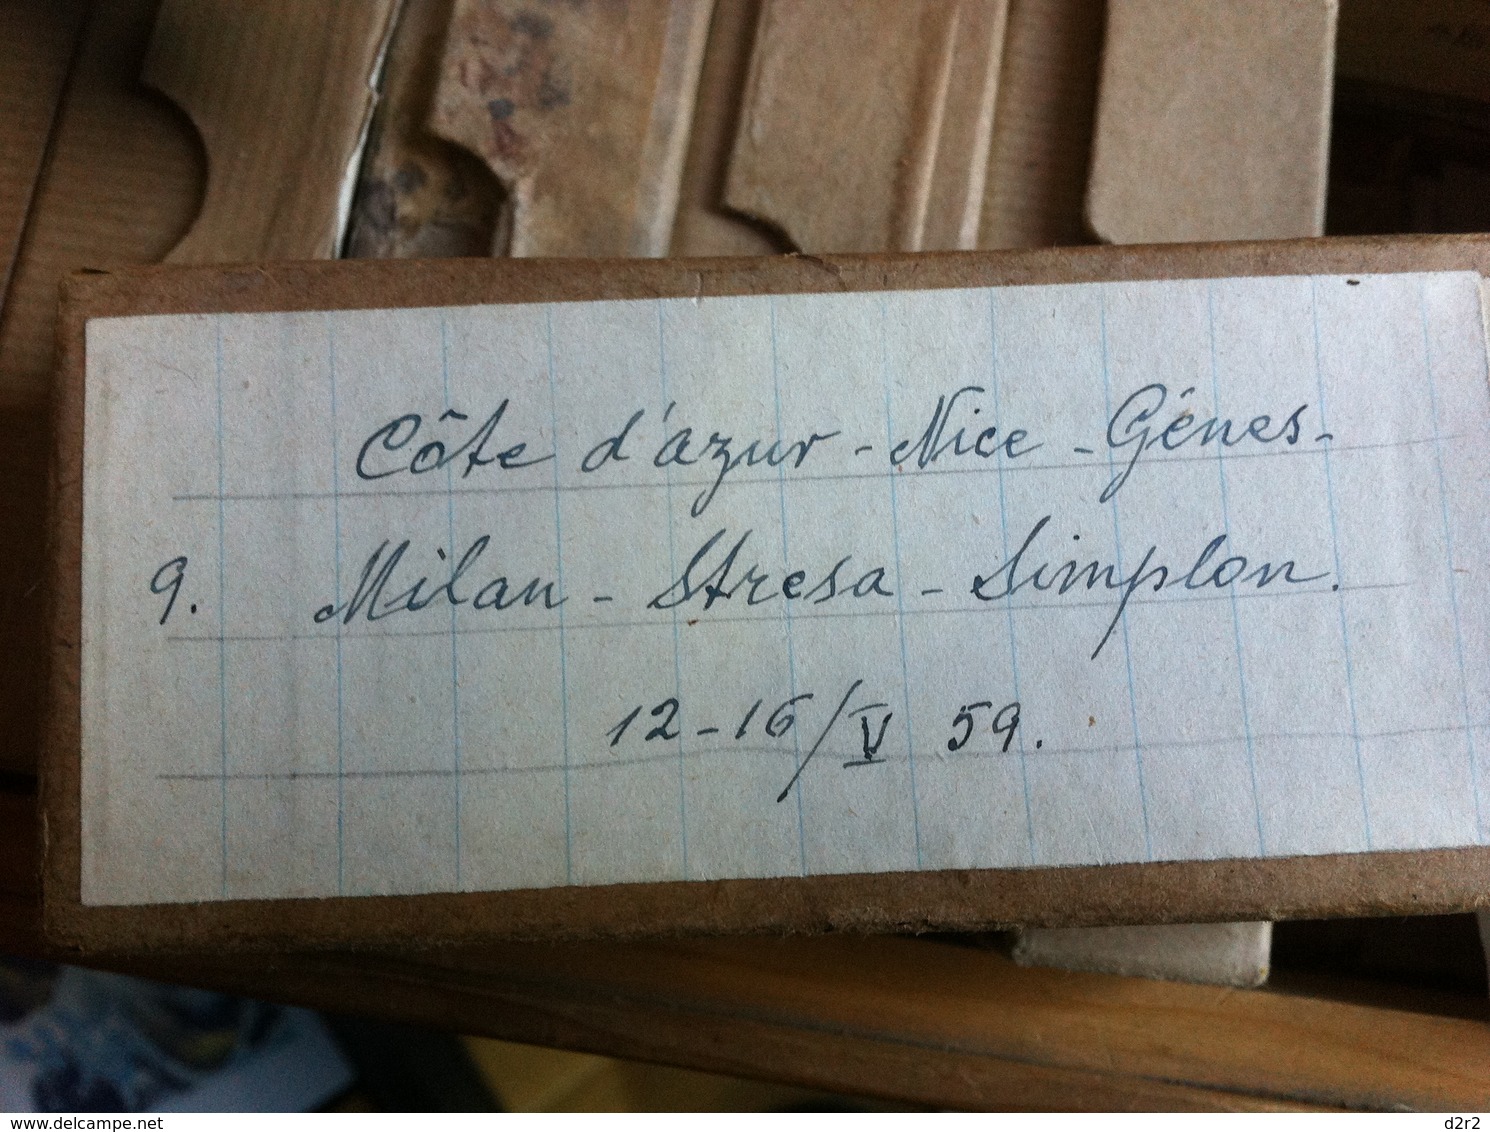 Côte d'azur - Nice - Gênes -
9. Milan - Stresa - Simplon.
12-16/V 59.
www.delcampe.net
d2r2